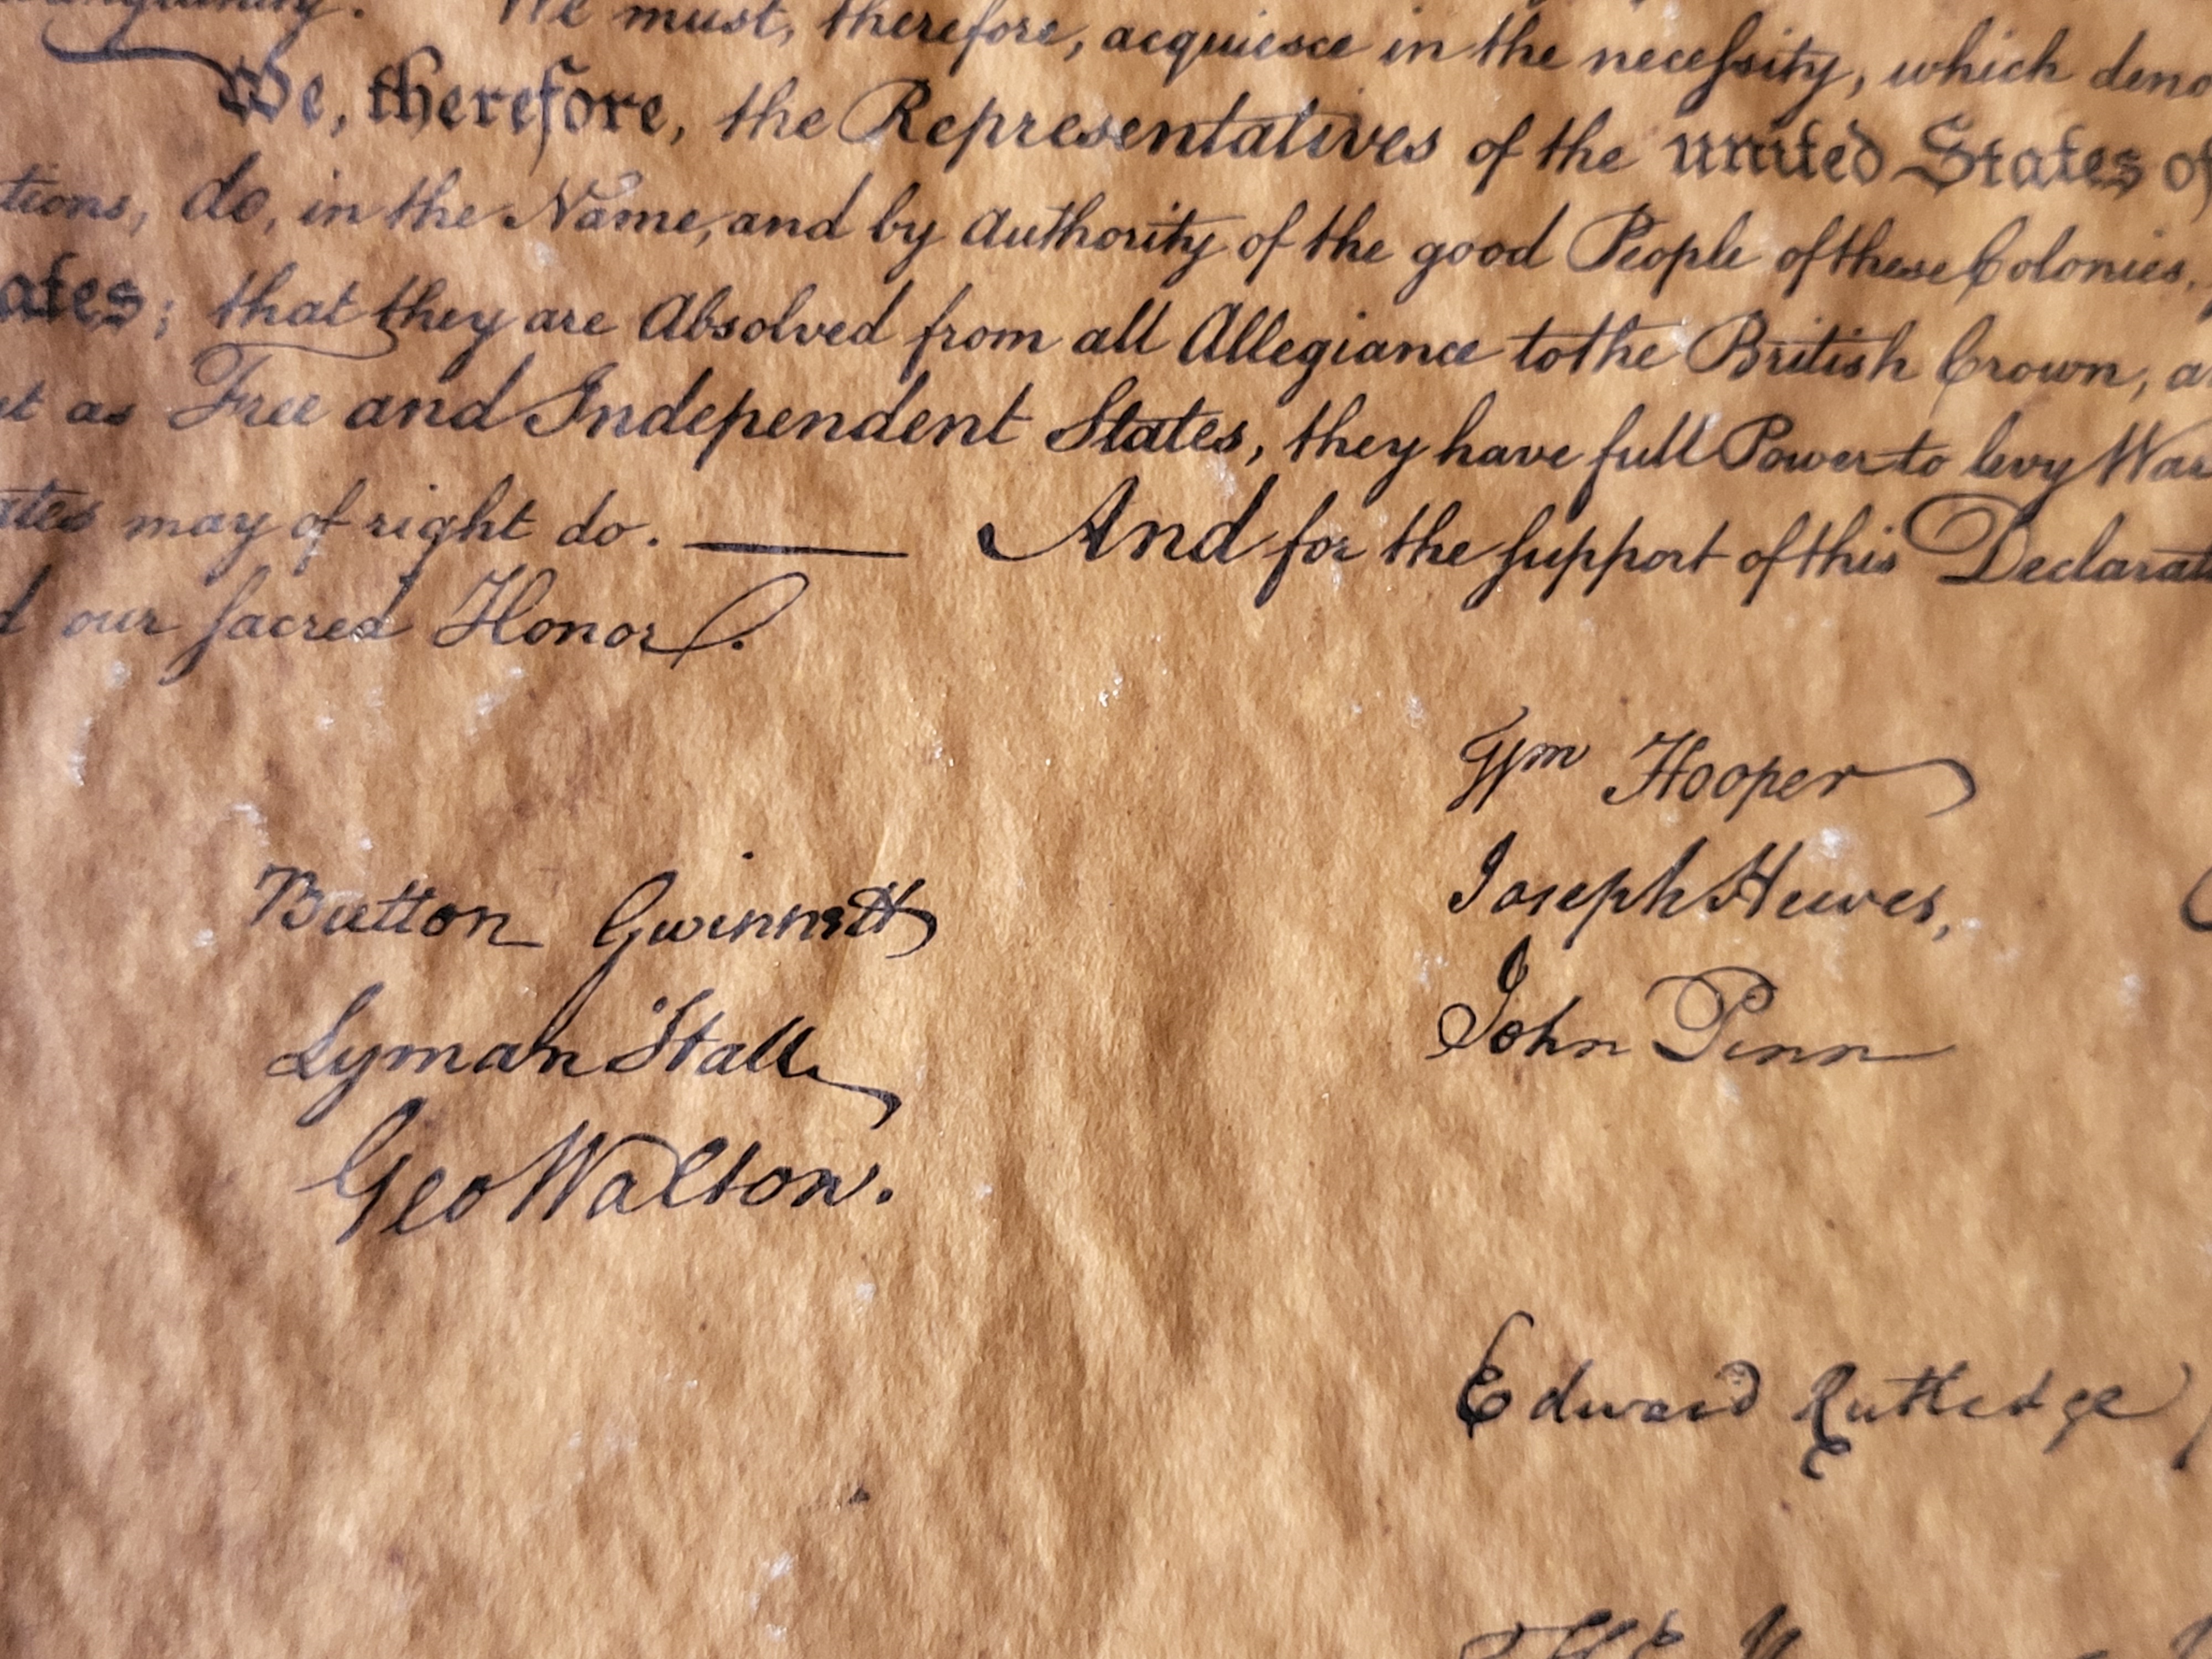 We must, therefore, acquiesce in the necessity, which deno
We, therefore, the Representatives of the united States of
tions, do, in the Name, and by Authority of the good People of these Colonies,
ates; that they are Absolved from all Allegiance to the British Crown, a
st as Free and Independent States, they have full Power to levy War
ates may of right do. — And for the support of this Declarat
d our sacred Honor.
Wm Hooper
Joseph Hewes,
John Penn
Button Gwinnett
Lyman Hall
Geo Walton.
Edward Rutledge